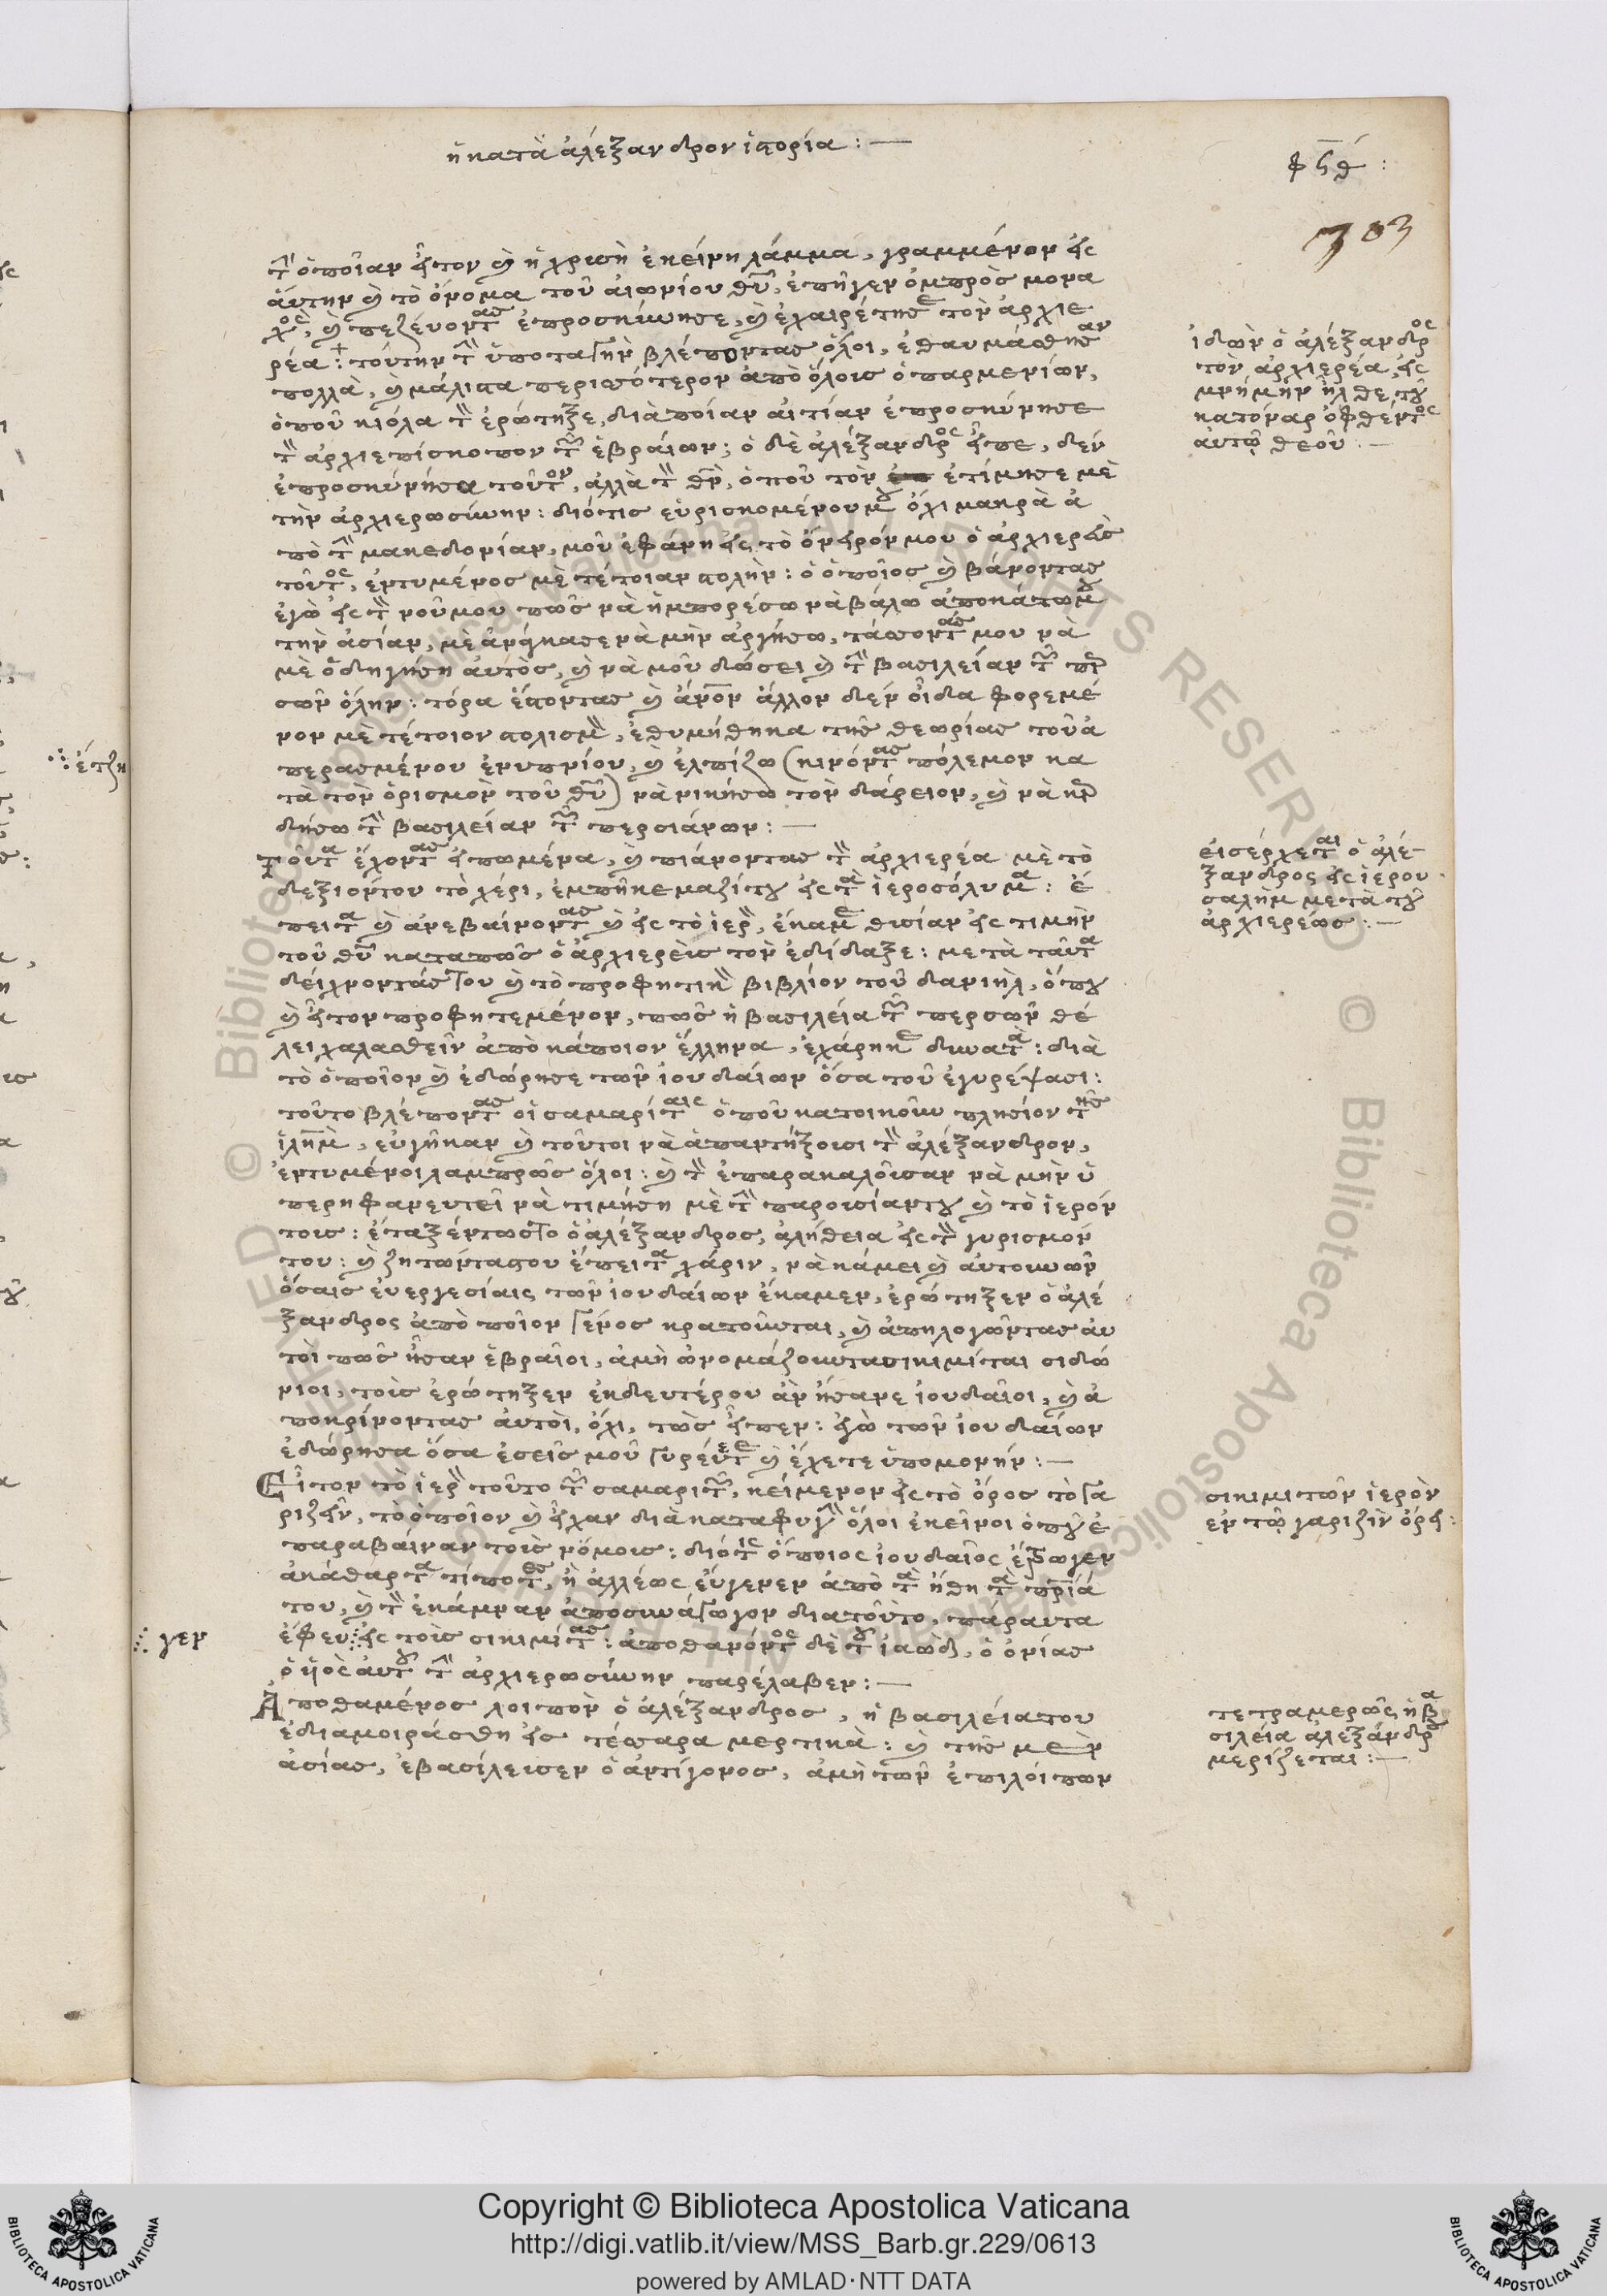 ἡ κατὰ ἀλέξανδρον ἱστορία : —
φϟθ :
303
τὴν ὁποῖαν ἦτον καὶ ἡ χρυσὴ ἐκείνη λάμμα, γραμμένον εἰς
ἀυτὴν καὶ τὸ ὄνομα τοῦ ἀιωνίου θῦ, ἐπῆγεν ὀμπρὸς μονα
χὸς, καὶ πεζέυοντας ἐπροσκύνησε, καὶ ἐχαιρέτησε τὸν ἀρχιε
ρέα : τούτην τὴν ὑποταγὴν βλέποντας ὅλοι, ἐθαυμάσθησαν
πολλὰ, καὶ μάλιστα περισσότερον ἀπὸ ὅλους ὁ παρμενίων,
ὁποῦ κιόλα τὸν ἐρώτηξε, διὰ ποίαν ἀιτίαν ἐπροσκύνησε
τὸν ἀρχιεπίσκοπον τῶν ἑβραίων ; ὁ δὲ ἀλέξανδρος εἶπε, δὲν
ἐπροσκύνησα τοῦτον, ἀλλὰ τὸν θν, ὁποῦ τὸν ἐτίμησε μὲ
τὴν ἀρχιερωσύνην : διότις εὑρισκομένου μου ὄχι μακρὰ ἀ
πὸ τὴν μακεδονίαν, μοῦ ἐφανη εἰς τὸ ὄνειρόν μου ὁ ἀρχιερεὺς
τοῦτος, ἐντυμένος μὲ τέτοιαν στολὴν : ὁ ὁποῖος καὶ βάνοντας
ἐγὼ εἰς τὸν νοῦ μου πῶς νὰ ἡμπορέσω νὰ βάλω ἀποκάτω μου
τὴν ἀσίαν, μὲ ἀνάγκασε νὰ μὴν ἀργήσω, τάσσοντάς μου νὰ
μὲ ὁδηγήση ἀυτὸς, καὶ νὰ μοῦ δώσει καὶ τὴν βασιλείαν τῶν περ
σῶν ὅλην : τόρα ἔστοντας καὶ ἄνον ἄλλον δὲν οἶδα φορεμέ
νον μὲ τέτοιον στολισμὸν, ἐθυμήθηκα τῆς θεωρίας τοῦ ἀ
περασμένου ἐνυπνίου, καὶ ἐλπίζω (κινόντας πόλεμον κα
τὰ τὸν ὁρισμὸν τοῦ θῦ) νὰ νικήσω τὸν δάρειον, καὶ νὰ κερ
δήσω τὴν βασιλείαν τῶν περσιάνων : —
Τοῦτα ἔχοντας εἰπωμένα, καὶ πιάνοντας τὸν ἀρχιερέα μὲ τὸ
δεξιόν του τὸ χέρι, ἐμπῆκε μαζί του εἰς τὰ ἱεροσόλυμα : ἔ
πειτα καὶ ἀνεβαίνοντας καὶ εἰς τὸ ἱερὸν, ἔκαμε θυσίαν εἰς τιμὴν
τοῦ θῦ καταπῶς ὁ ἀρχιερεὺς τὸν ἐδίδαξε : μετὰ ταῦτα
δείχνοντάς του καὶ τὸ προφητικὸν βιβλίον τοῦ δανιὴλ, ὁποῦ
καὶ ἦτον προφητεμένον, πῶς ἡ βασιλεία τῶν περσῶν θέ
λει χαλασθεῖν ἀπὸ κάποιον ἕλληνα, ἐχάρηκε δυνατὰ : διὰ
τὸ ὁποῖον καὶ ἐδώρησε τῶν ἰουδαίων ὅσα τοῦ ἐγυρέψασι :
τοῦτο βλέποντας οἱ σαμαρίταις ὁποῦ κατοικοῦν πλησίον τῆς
ἱλημ, εὐγῆκαν καὶ τοῦτοι νὰ ἀπαντήξουσι τὸν ἀλέξανδρον,
ἐντυμένοι λαμπρῶς ὅλοι : καὶ τὸν ἐπαρακαλοῦσαν νὰ μὴν ὑ
περηφανευτεῖ νὰ τιμήση μὲ τὴν παρουσίαν του καὶ τὸ ἱερόν
τους : ἔταξέν τως το ὁ ἀλέξανδρος, ἀλήθεια εἰς τὸν γυρισμόν
του : καὶ ζητῶντας του ἔπειτα χάριν, νὰ κάμει καὶ ἀυτουνῶν
ὅσαις ἐυεργεσίαις τῶν ἰουδαίων ἔκαμεν, ἐρώτηξεν ὁ ἀλέ
ξανδρος ἀπὸ ποῖον γένος κρατοῦνται, καὶ ἀπηλογῶντας ἀυ
τοὶ πῶς ἦσαν ἑβραῖοι, ἀμὴ ὠνομάζουνται σικιμίται σιδώ
νιοι, τοὺς ἐρώτηξεν ἐκδευτέρου ἂν ἤσανε ἰουδαῖοι, καὶ ἀ
ποκρίνοντας ἀυτοὶ, ὄχι, τὼς εἶπεν : ἐγὼ τῶν ἰουδαίων
ἐδώρησα ὅσα ἐσεῖς μοῦ γυρέυετε καὶ ἔχετε ὑπομονήν : —
Εἶτον τὸ ἱερὸν τοῦτο τῶν σαμαριτῶν, κείμενον εἰς τὸ ὄρος τὸ γα
ριζεὶν, τὸ ὁποῖον καὶ εἶχαν διὰ καταφυγὴν ὅλοι ἐκεῖνοι ὁποῦ ἐ
παραβαίναν τοὺς νόμους : διότις ὅποιος ἰουδαῖος ἔτρωγεν
ἀκάθαρτα τίποτες, ἢ ἀλλέως εὔγενεν ἀπὸ τὰ ἤθη τὰ πριά
του, καὶ τὸν ἐκάμναν ἀποσυνάγωγον διατοῦτο, πάραυτα
ἔφευ εἰς τοὺς σικιμίτας : ἀποθανόντος δὲ τοῦ ἰαδδοῦ, ὁ ὀνίας
ὁ ὑιὸς ἀυτοῦ τὴν ἀρχιερωσύνην παρέλαβεν : —
Ἀποθαμένος λοιπὸν ὁ ἀλέξανδρος, ἡ βασιλεία του
ἐδιαμοιράσθη εἰς τέσσαρα μερτικὰ : καὶ τῆς μὲν
ἀσίας, ἐβασίλευσεν ὁ ἀντίγονος, ἀμὴ τῶν ἐπιλοίπων
ἰδὼν ὁ ἀλέξανδρος
τὸν ἀρχιερέα, εἰς
μνήμην ἦλθε τοῦ
κατόναρ ὀφθέντος
ἀυτῷ θεοῦ : —
ἐισέρχεται ὁ ἀλέ-
ξανδρος εἰς ἱερου
σαλὴμ μετὰ τοῦ
ἀρχιερέως : —
σικιμιτῶν ἱερὸν
ἐν τῷ γαριζὶν ὄρει :
τετραμερῶς ἡ βα
σιλεία ἀλεξάνδρου
μερίζεται : —
γεν
Copyright © Biblioteca Apostolica Vaticana
http://digi.vatlib.it/view/MSS_Barb.gr.229/0613
powered by AMLAD·NTT DATA
BIBLIOTECA APOSTOLICA VATICANA
BIBLIOTECA APOSTOLICA VATICANA